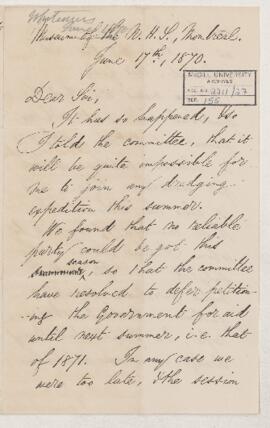 Whiteaves
Museum of the N. H. S., Montreal.
June 17th, 1870.
McGILL UNIVERSITY
ARCHIVES
ACC. NO. 2211/27
REF. 155
Dear Sir,
It has so happened, & so
I told the committee, that it
will be quite impossible for
me to join any dredging
expedition this summer.
We found that no reliable
party could be got this
season
, so that the committee
have resolved to defer petition-
ing the Government for aid
until next summer, i.e. that
of 1871. In any case we
were too late, & the session